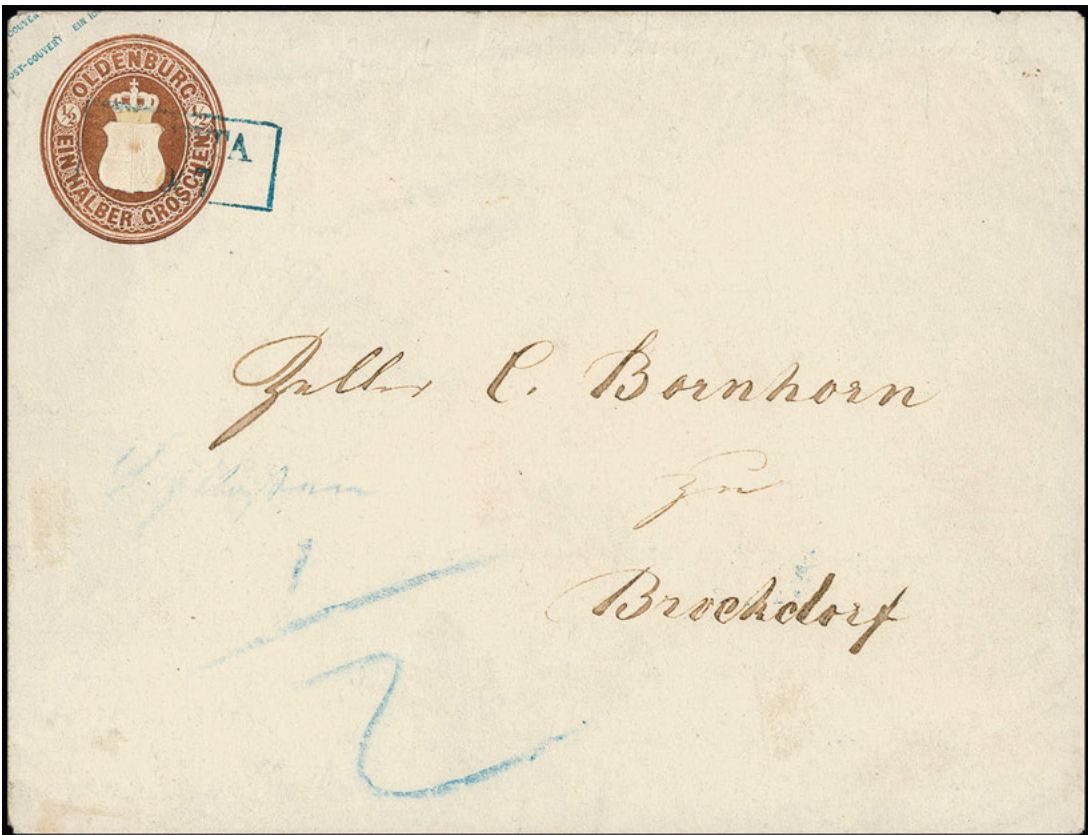 POST-COUVERT EIN
OLDENBURG
½ ½
EIN HALBER GROSCHEN
TA
Zeller C. Bornhorn
zu
Brockdorf
1/2